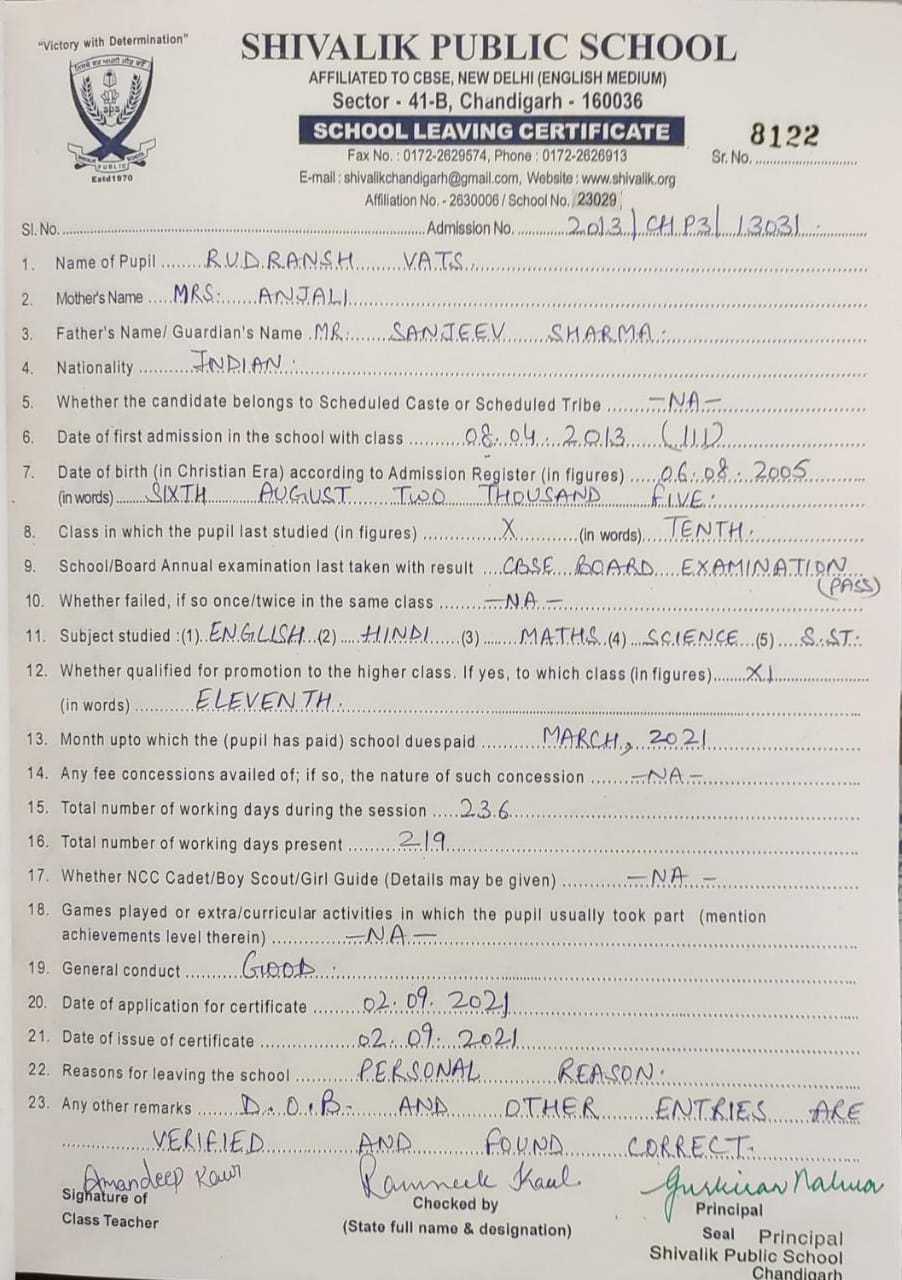 "Victory with Determination"
SHIVALIK PUBLIC SCHOOL
AFFILIATED TO CBSE, NEW DELHI (ENGLISH MEDIUM)
Sector - 41-B, Chandigarh - 160036
SCHOOL LEAVING CERTIFICATE
8122
Fax No. : 0172-2629574, Phone : 0172-2626913
Sr. No.
E-mail : shivalikchandigarh@gmail.com, Website : www.shivalik.org
Affiliation No. - 2630006 / School No. 23029
PUBLIC
Estd1970
Sl. No. Admission No. 2013/CHP3/13031
1. Name of Pupil RUDRANSH VATS
2. Mother's Name MRS. ANJALI
3. Father's Name/ Guardian's Name MR. SANJEEV SHARMA.
4. Nationality INDIAN.
5. Whether the candidate belongs to Scheduled Caste or Scheduled Tribe -NA-
6. Date of first admission in the school with class 08.04.2013 (III)
7. Date of birth (in Christian Era) according to Admission Register (in figures) 06.08.2005
(in words) SIXTH AUGUST TWO THOUSAND FIVE.
8. Class in which the pupil last studied (in figures) X (in words) TENTH.
9. School/Board Annual examination last taken with result CBSE BOARD EXAMINATION
(PASS)
10. Whether failed, if so once/twice in the same class -NA-
11. Subject studied :(1) ENGLISH (2) HINDI (3) MATHS (4) SCIENCE (5) S.ST.
12. Whether qualified for promotion to the higher class. If yes, to which class (in figures) XI
(in words) ELEVENTH.
13. Month upto which the (pupil has paid) school duespaid MARCH, 2021
14. Any fee concessions availed of; if so, the nature of such concession -NA-
15. Total number of working days during the session 236
16. Total number of working days present 219
17. Whether NCC Cadet/Boy Scout/Girl Guide (Details may be given) -NA-
18. Games played or extra/curricular activities in which the pupil usually took part (mention
achievements level therein) -NA-
19. General conduct GOOD.
20. Date of application for certificate 02.09.2021
21. Date of issue of certificate 02.09.2021
22. Reasons for leaving the school PERSONAL REASON.
23. Any other remarks D.O.B. AND OTHER ENTRIES ARE
VERIFIED AND FOUND CORRECT.
Amandeep Kaur
Signature of
Class Teacher
Ramneek Kaul
Checked by
(State full name & designation)
Principal
Seal Principal
Shivalik Public School
Chandigarh